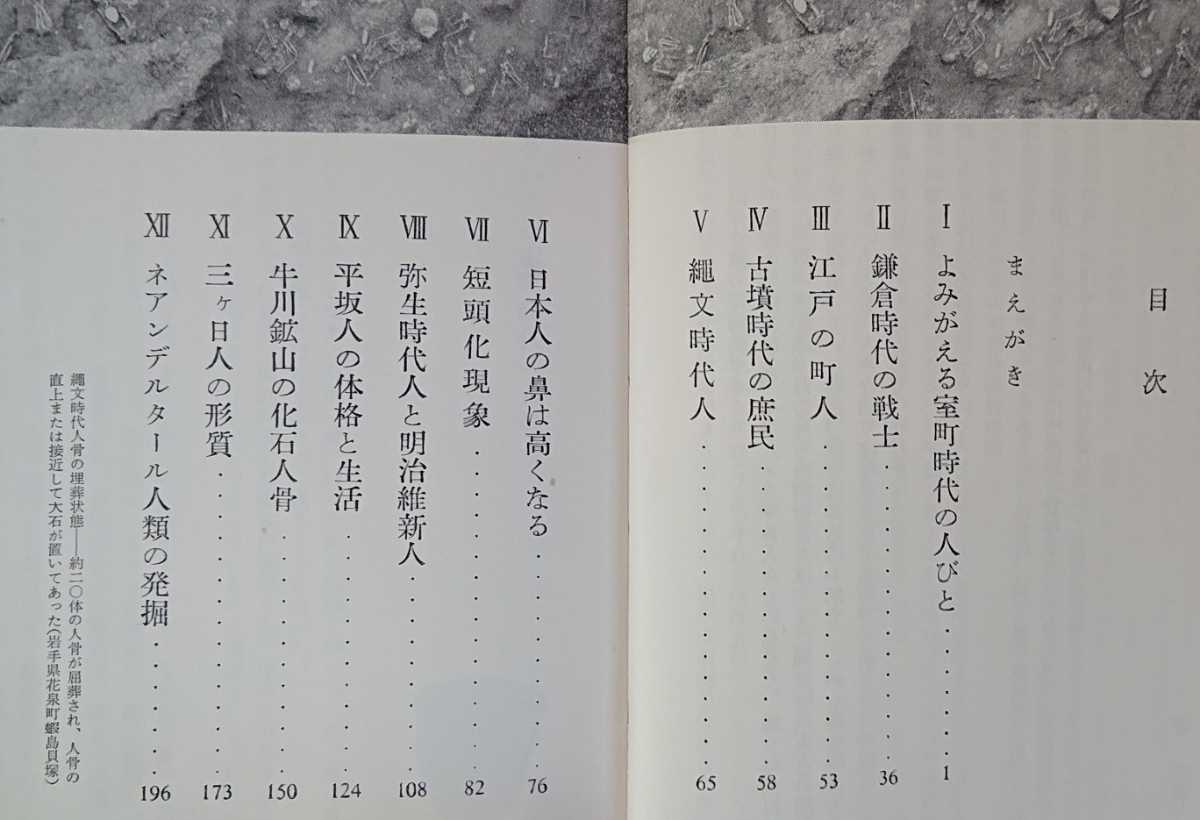 目次
まえがき
Ⅰ よみがえる室町時代の人びと・・・・・・・1
Ⅱ 鎌倉時代の戦士・・・・・・・・・・・・・36
Ⅲ 江戸の町人・・・・・・・・・・・・・53
Ⅳ 古墳時代の庶民・・・・・・・・・・・・・58
Ⅴ 縄文時代人・・・・・・・・・・・・・・65
Ⅵ 日本人の鼻は高くなる・・・・・・・・・76
Ⅶ 短頭化現象・・・・・・・・・・・・・82
Ⅷ 弥生時代人と明治維新人・・・・・・・・108
Ⅸ 平坂人の体格と生活・・・・・・・・・・124
Ⅹ 牛川鉱山の化石人骨・・・・・・・・・・150
Ⅺ 三ヶ日人の形質・・・・・・・・・・・・173
Ⅻ ネアンデルタール人類の発掘・・・・・・・196
縄文時代人骨の埋葬状態――約二〇体の人骨が屈葬され、人骨の
直上または接近して大石が置いてあった(岩手県花泉町蝦島貝塚)